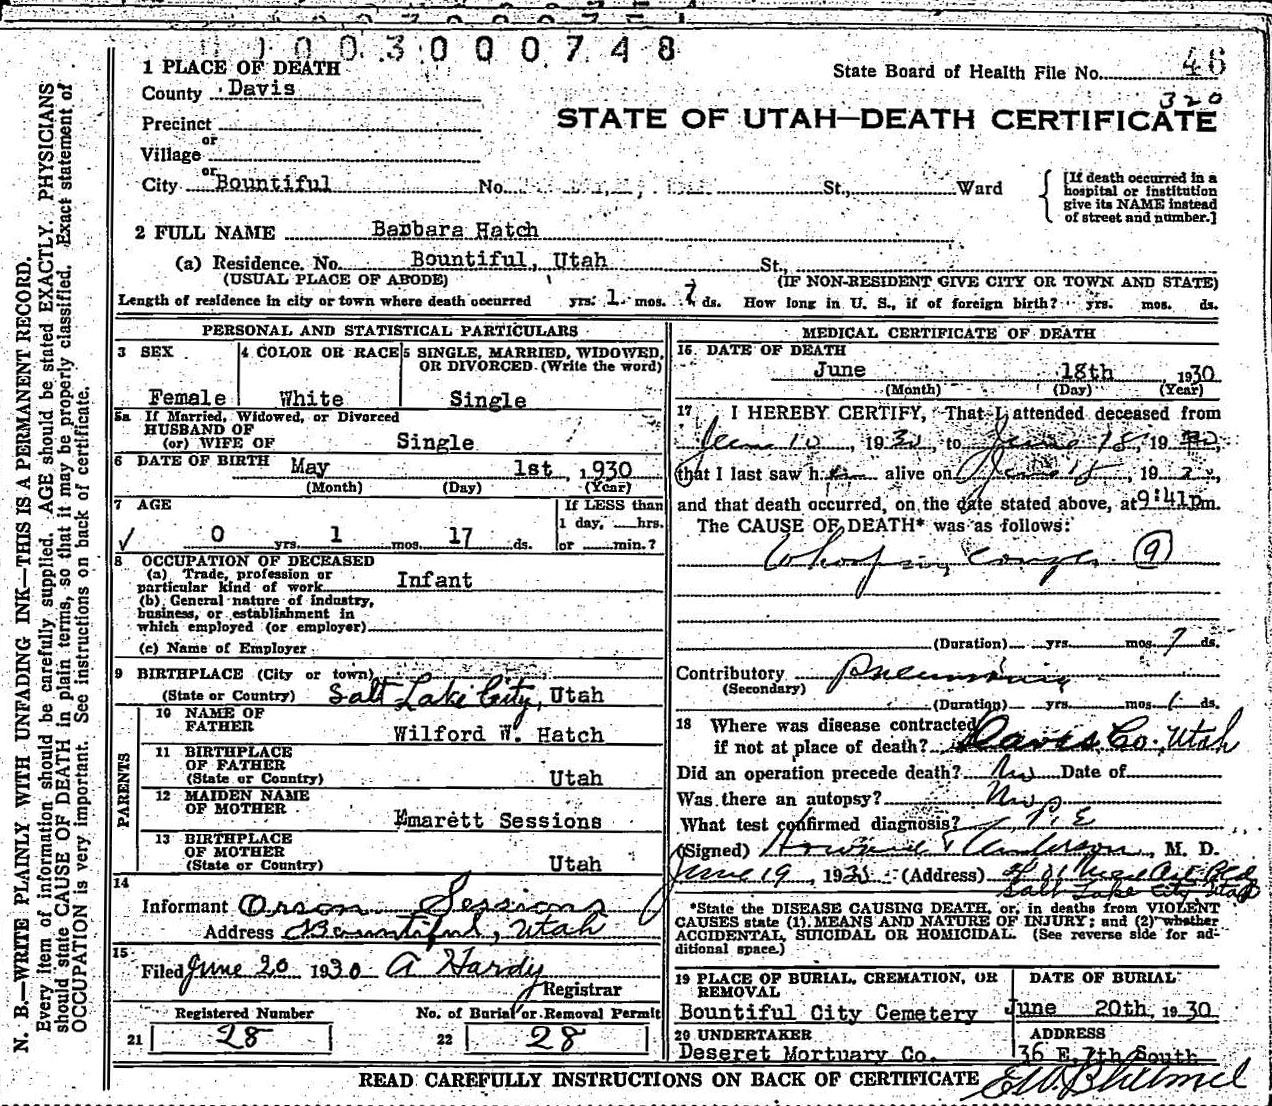 0 1 0 0 3 0 0 0 7 4 8
1 PLACE OF DEATH
State Board of Health File No. 46
County Davis
320
STATE OF UTAH—DEATH CERTIFICATE
Precinct
or
Village
or
City Bountiful No. St., Ward
[If death occurred in a
hospital or institution
give its NAME instead
of street and number.]
2 FULL NAME Barbara Hatch
(a) Residence. No. Bountiful, Utah St.,
(USUAL PLACE OF ABODE) (IF NON-RESIDENT GIVE CITY OR TOWN AND STATE)
Length of residence in city or town where death occurred yrs. 1 mos. 7 ds. How long in U. S., if of foreign birth? yrs. mos. ds.
PERSONAL AND STATISTICAL PARTICULARS
3 SEX
Female
4 COLOR OR RACE
White
5 SINGLE, MARRIED, WIDOWED,
OR DIVORCED. (Write the word)
Single
5a If Married, Widowed, or Divorced
HUSBAND OF
(or) WIFE OF Single
6 DATE OF BIRTH May 1st, 1930
(Month) (Day) (Year)
7 AGE
If LESS than
1 day, hrs.
or min.?
✓ 0 yrs. 1 mos. 17 ds.
8 OCCUPATION OF DECEASED
(a) Trade, profession or
particular kind of work Infant
(b) General nature of industry,
business, or establishment in
which employed (or employer)
(c) Name of Employer
9 BIRTHPLACE (City or town)
(State or Country) Salt Lake City, Utah
PARENTS
10 NAME OF
FATHER Wilford W. Hatch
11 BIRTHPLACE
OF FATHER
(State or Country) Utah
12 MAIDEN NAME
OF MOTHER Emarett Sessions
13 BIRTHPLACE
OF MOTHER
(State or Country) Utah
14
Informant Orson Sessions
Address Bountiful, Utah
15
Filed June 20 1930 A Hardy
Registrar
Registered Number
21 28
No. of Burial or Removal Permit
22 28
MEDICAL CERTIFICATE OF DEATH
16 DATE OF DEATH
June 18th 1930
(Month) (Day) (Year)
17 I HEREBY CERTIFY, That I attended deceased from
June 10, 1930, to June 18, 1930
that I last saw her alive on June 18, 19
and that death occurred, on the date stated above, at 9:41pm.
The CAUSE OF DEATH* was as follows:
Whooping cough 9
(Duration) yrs. mos. 7 ds.
Contributory Pneumonia
(Secondary)
(Duration) yrs. mos. 1 ds.
18 Where was disease contracted
if not at place of death? Davis Co., Utah
Did an operation precede death? No Date of
Was there an autopsy? No
What test confirmed diagnosis? P.E
(Signed) Howard Anderson, M. D.
June 19, 1930 (Address)
Salt Lake City Utah
*State the DISEASE CAUSING DEATH, or, in deaths from VIOLENT
CAUSES state (1) MEANS AND NATURE OF INJURY; and (2) whether
ACCIDENTAL, SUICIDAL OR HOMICIDAL. (See reverse side for ad-
ditional space.)
19 PLACE OF BURIAL, CREMATION, OR
REMOVAL
Bountiful City Cemetery
DATE OF BURIAL
June 20th, 1930
20 UNDERTAKER
Deseret Mortuary Co.
ADDRESS
36 E. 7th South
READ CAREFULLY INSTRUCTIONS ON BACK OF CERTIFICATE
N. B.—WRITE PLAINLY WITH UNFADING INK—THIS IS A PERMANENT RECORD.
Every item of information should be carefully supplied. AGE should be stated EXACTLY. PHYSICIANS
should state CAUSE OF DEATH in plain terms, so that it may be properly classified. Exact statement of
OCCUPATION is very important. See instructions on back of certificate.